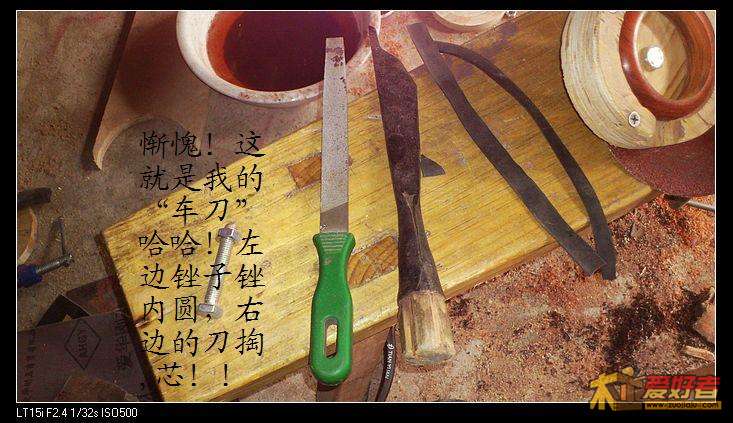 惭愧！这
就是我的
“车刀”
哈哈！左
边锉子锉
内圆，右
边的刀掏
芯！！
木工爱好者
www.zuojiaju.com
LT15i F2.4 1/32s ISO500